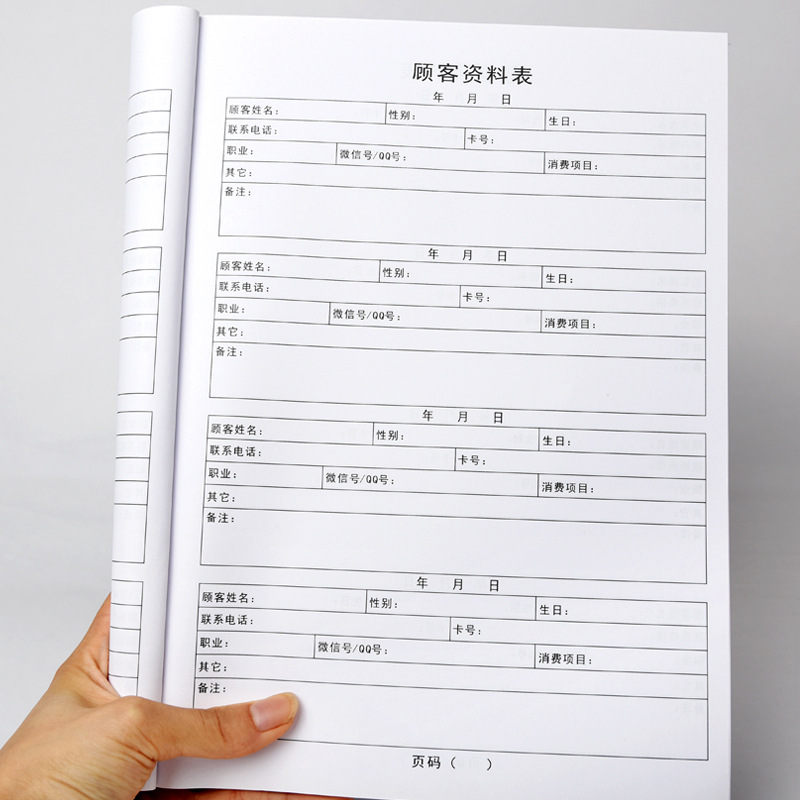 顾客资料表
年 月 日
顾客姓名： 性别： 生日：
联系电话： 卡号：
职业： 微信号/QQ号： 消费项目：
其它：
备注：
年 月 日
顾客姓名： 性别： 生日：
联系电话： 卡号：
职业： 微信号/QQ号： 消费项目：
其它：
备注：
年 月 日
顾客姓名： 性别： 生日：
联系电话： 卡号：
职业： 微信号/QQ号： 消费项目：
其它：
备注：
年 月 日
顾客姓名： 性别： 生日：
联系电话： 卡号：
职业： 微信号/QQ号： 消费项目：
其它：
备注：
页码（ ）